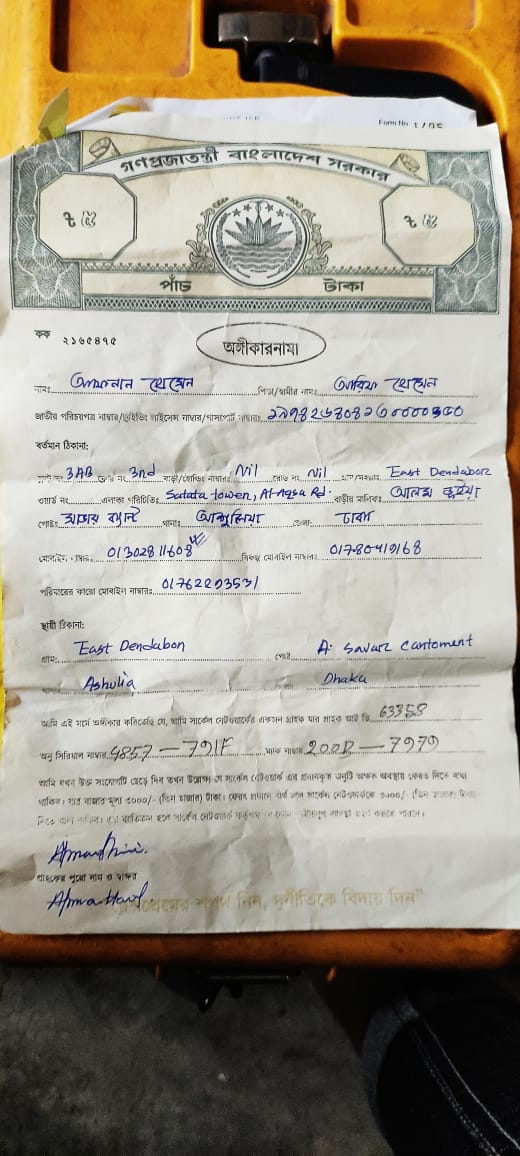 Form No
গণপ্রজাতন্ত্রী বাংলাদেশ সরকার
৳ ৫ ৳ ৫
পাঁচ টাকা
কক ২১৬৫৪৭৫
অঙ্গীকারনামা
নামঃ হোসেন পিতা/স্বামীর নামঃ আরিফ হোসেন
জাতীয় পরিচয়পত্র নাম্বার/ড্রাইভিং লাইসেন্স নাম্বার/পাসপোর্ট নাম্বারঃ
বর্তমান ঠিকানা:
3AB 3nd বাড়ী/হোল্ডিং নাম্বারঃ Nil রোড নং Nil East Dendabor
ওয়ার্ড নং এলাকা পরিচিতিঃ Satata tower, Al-Aqsa Rd. বাড়ীর মালিকঃ আলম ভূইয়া
পোষ্টঃ থানাঃ আশুলিয়া জেলাঃ ঢাকা
মোবাইল নাম্বারঃ 01302811608 বিকল্প মোবাইল নাম্বারঃ 01780419168
পরিবারের কারো মোবাইল নাম্বারঃ 01762203531
স্থায়ী ঠিকানা:
গ্রামঃ East Dendabor পোষ্টঃ Savar Cantoment
Ashulia Dhaka
আমি এই মর্মে অঙ্গীকার করিতেছি যে, আমি সার্কেল নেটওয়ার্কের একজন গ্রাহক যার গ্রাহক আই ডি 63358
অনু সিরিয়াল নাম্বার 4857 - 791F ম্যাক নাম্বার 200D - 7979
আমি যখন উক্ত সংযোগটি ছেড়ে দিব তখন উল্লেখ্য যে সার্কেল নেটওয়ার্ক এর প্রদানকৃত অনুটি অক্ষত অবস্থায় ফেরত দিতে বাধ্য
থাকিব। যার বাজার মূল্য ৩০০০/- (তিন হাজার) টাকা। ফেরৎ প্রদানে ব্যর্থ হলে সার্কেল নেটওয়ার্ককে ৩০০০/- (তিন হাজার) টাকা
গ্রাহকের পুরো নাম ও স্বাক্ষর
শপথ নিন, দুর্নীতিকে বিদায় দিন"